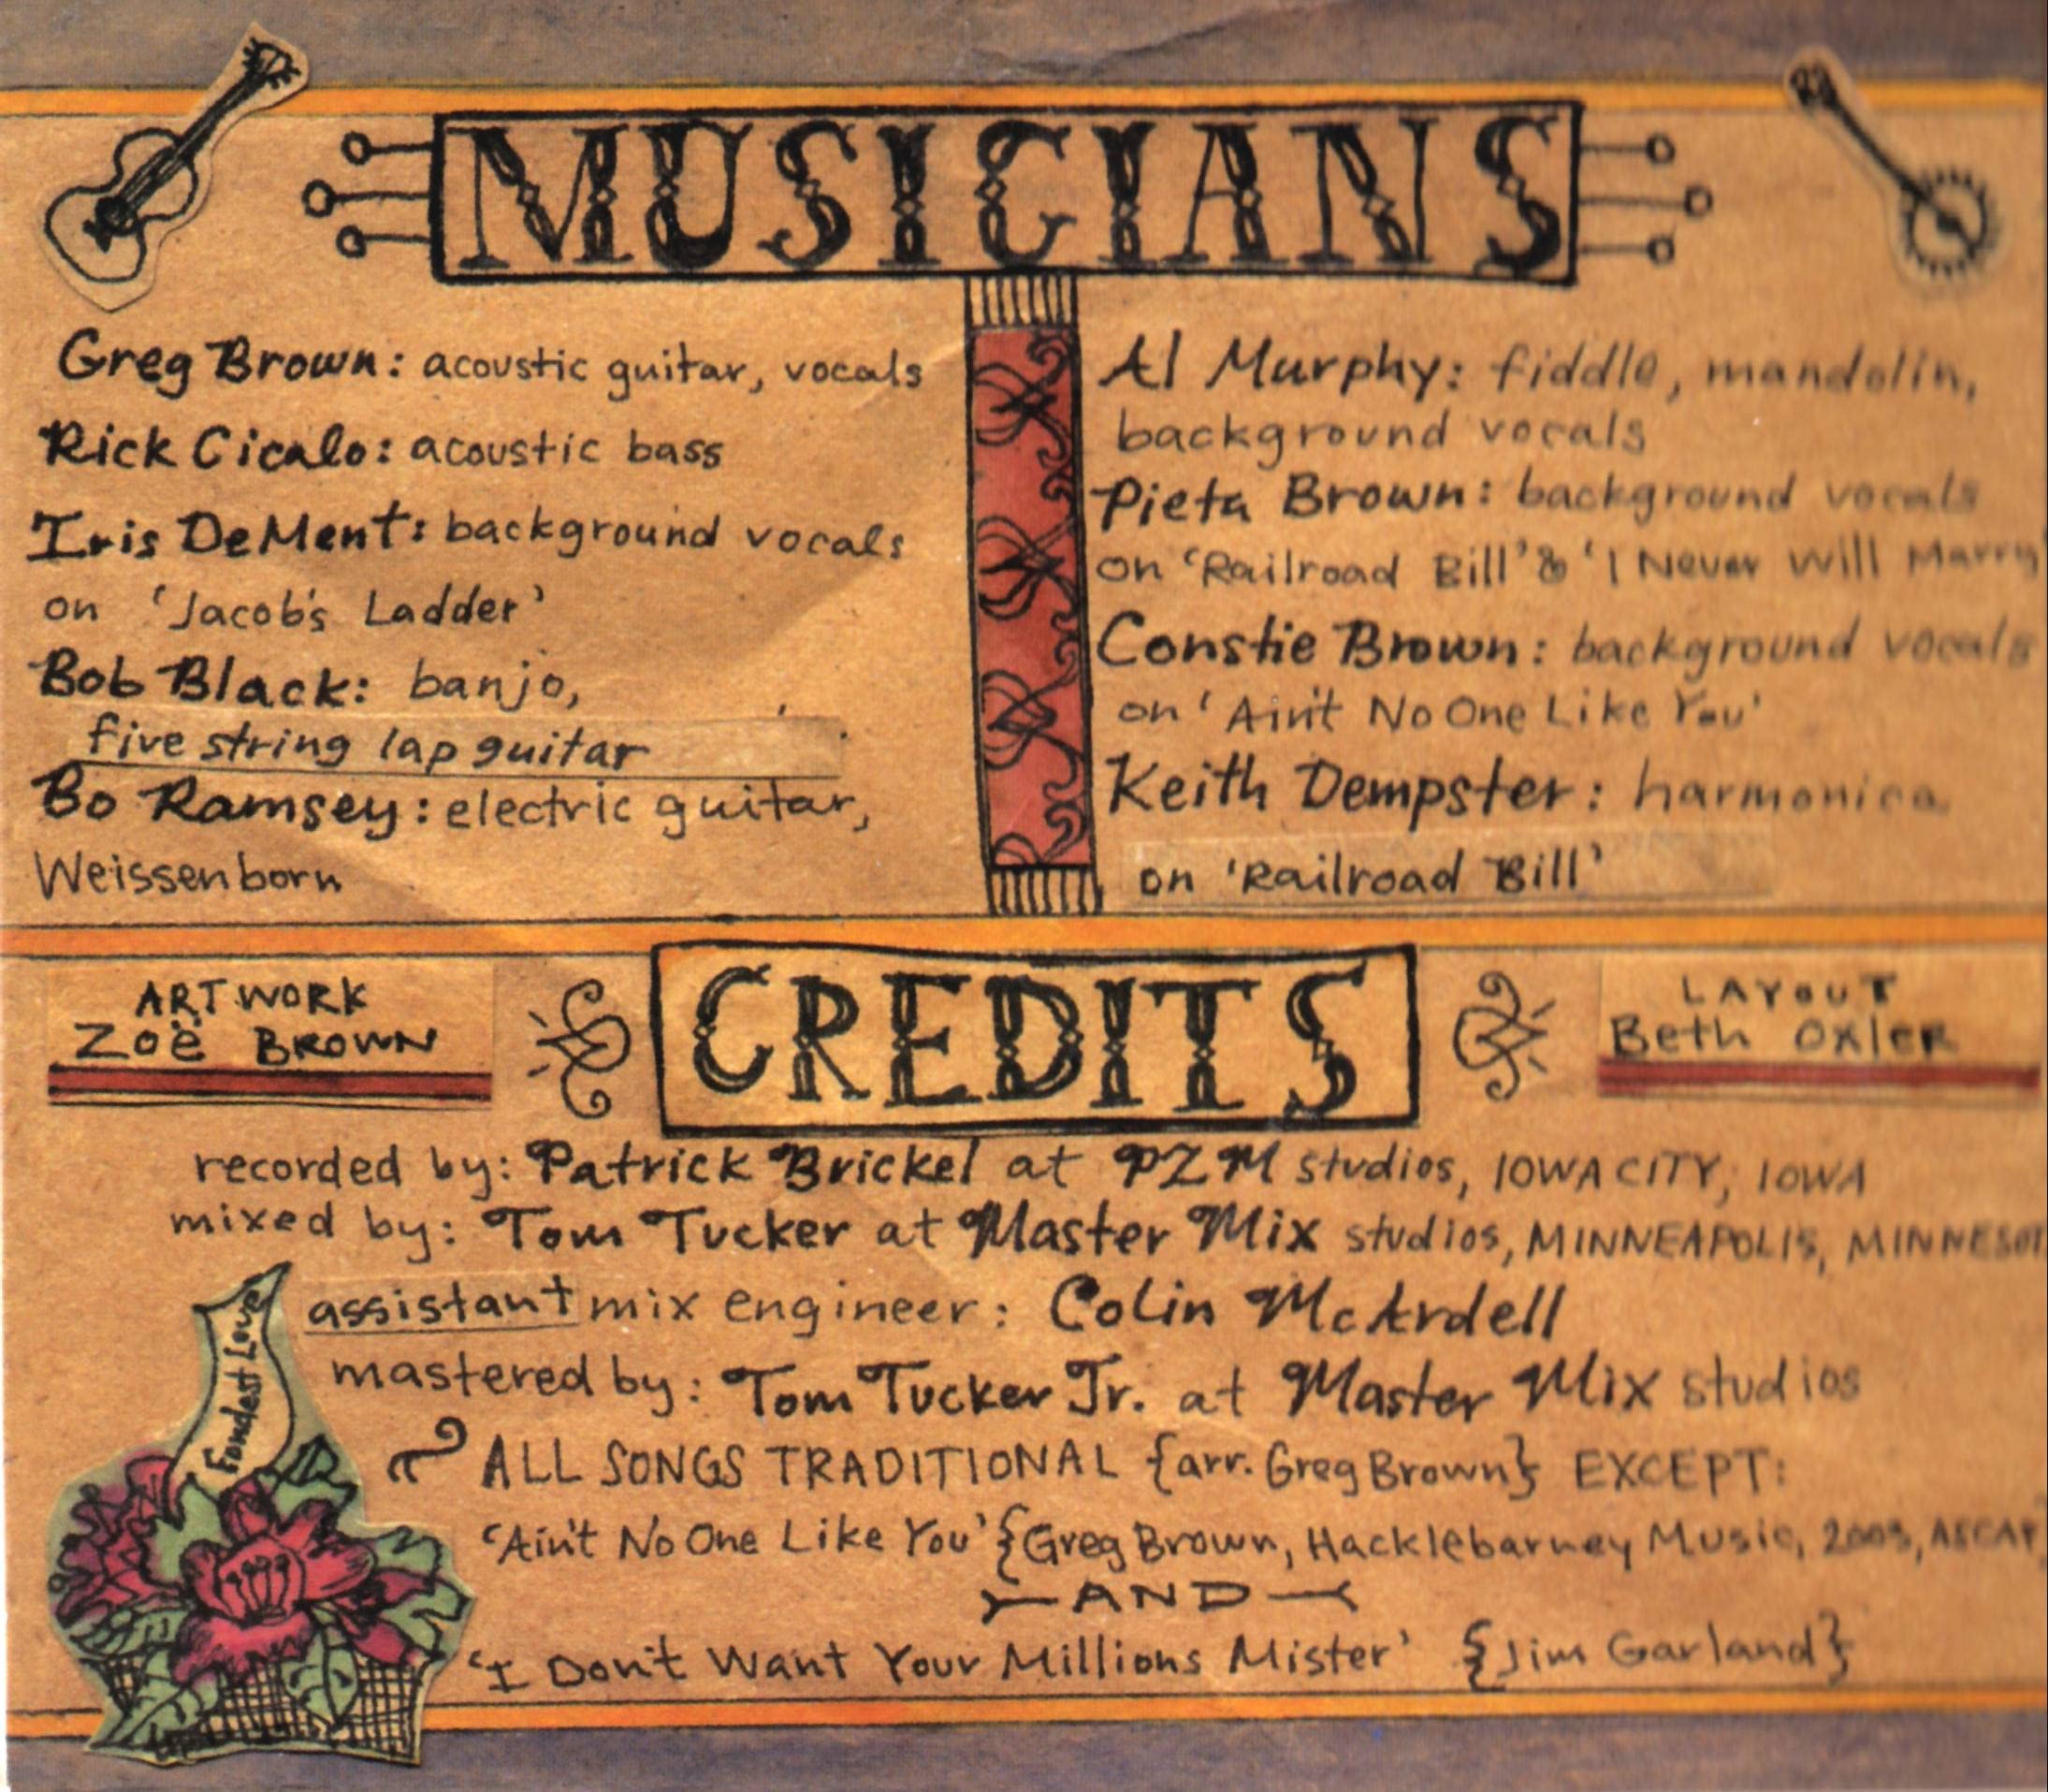 MUSICIANS
Greg Brown: acoustic guitar, vocals
Rick Cicalo: acoustic bass
Iris DeMent: background vocals
on 'Jacob's Ladder'
Bob Black: banjo,
five string lap guitar
Bo Ramsey: electric guitar,
Weissenborn
Al Murphy: fiddle, mandolin,
background vocals
Pieta Brown: background vocals
on 'Railroad Bill' & 'I Never Will Marry'
Constie Brown: background vocals
on 'Ain't No One Like You'
Keith Dempster: harmonica
on 'Railroad Bill'
CREDITS
ARTWORK
Zoë BROWN
LAYOUT
Beth OxlER
recorded by: Patrick Brickel at PZM studios, IOWA CITY, IOWA
mixed by: Tom Tucker at Master Mix studios, MINNEAPOLIS, MINNESOT
assistant mix engineer: Colin McArdell
mastered by: Tom Tucker Jr. at Master Mix studios
ALL SONGS TRADITIONAL {arr. Greg Brown} EXCEPT:
'Ain't No One Like You' {Greg Brown, Hacklebarney Music, 2003, ASCAP}
AND
'I Don't Want Your Millions Mister' {Jim Garland}
Fondest Love